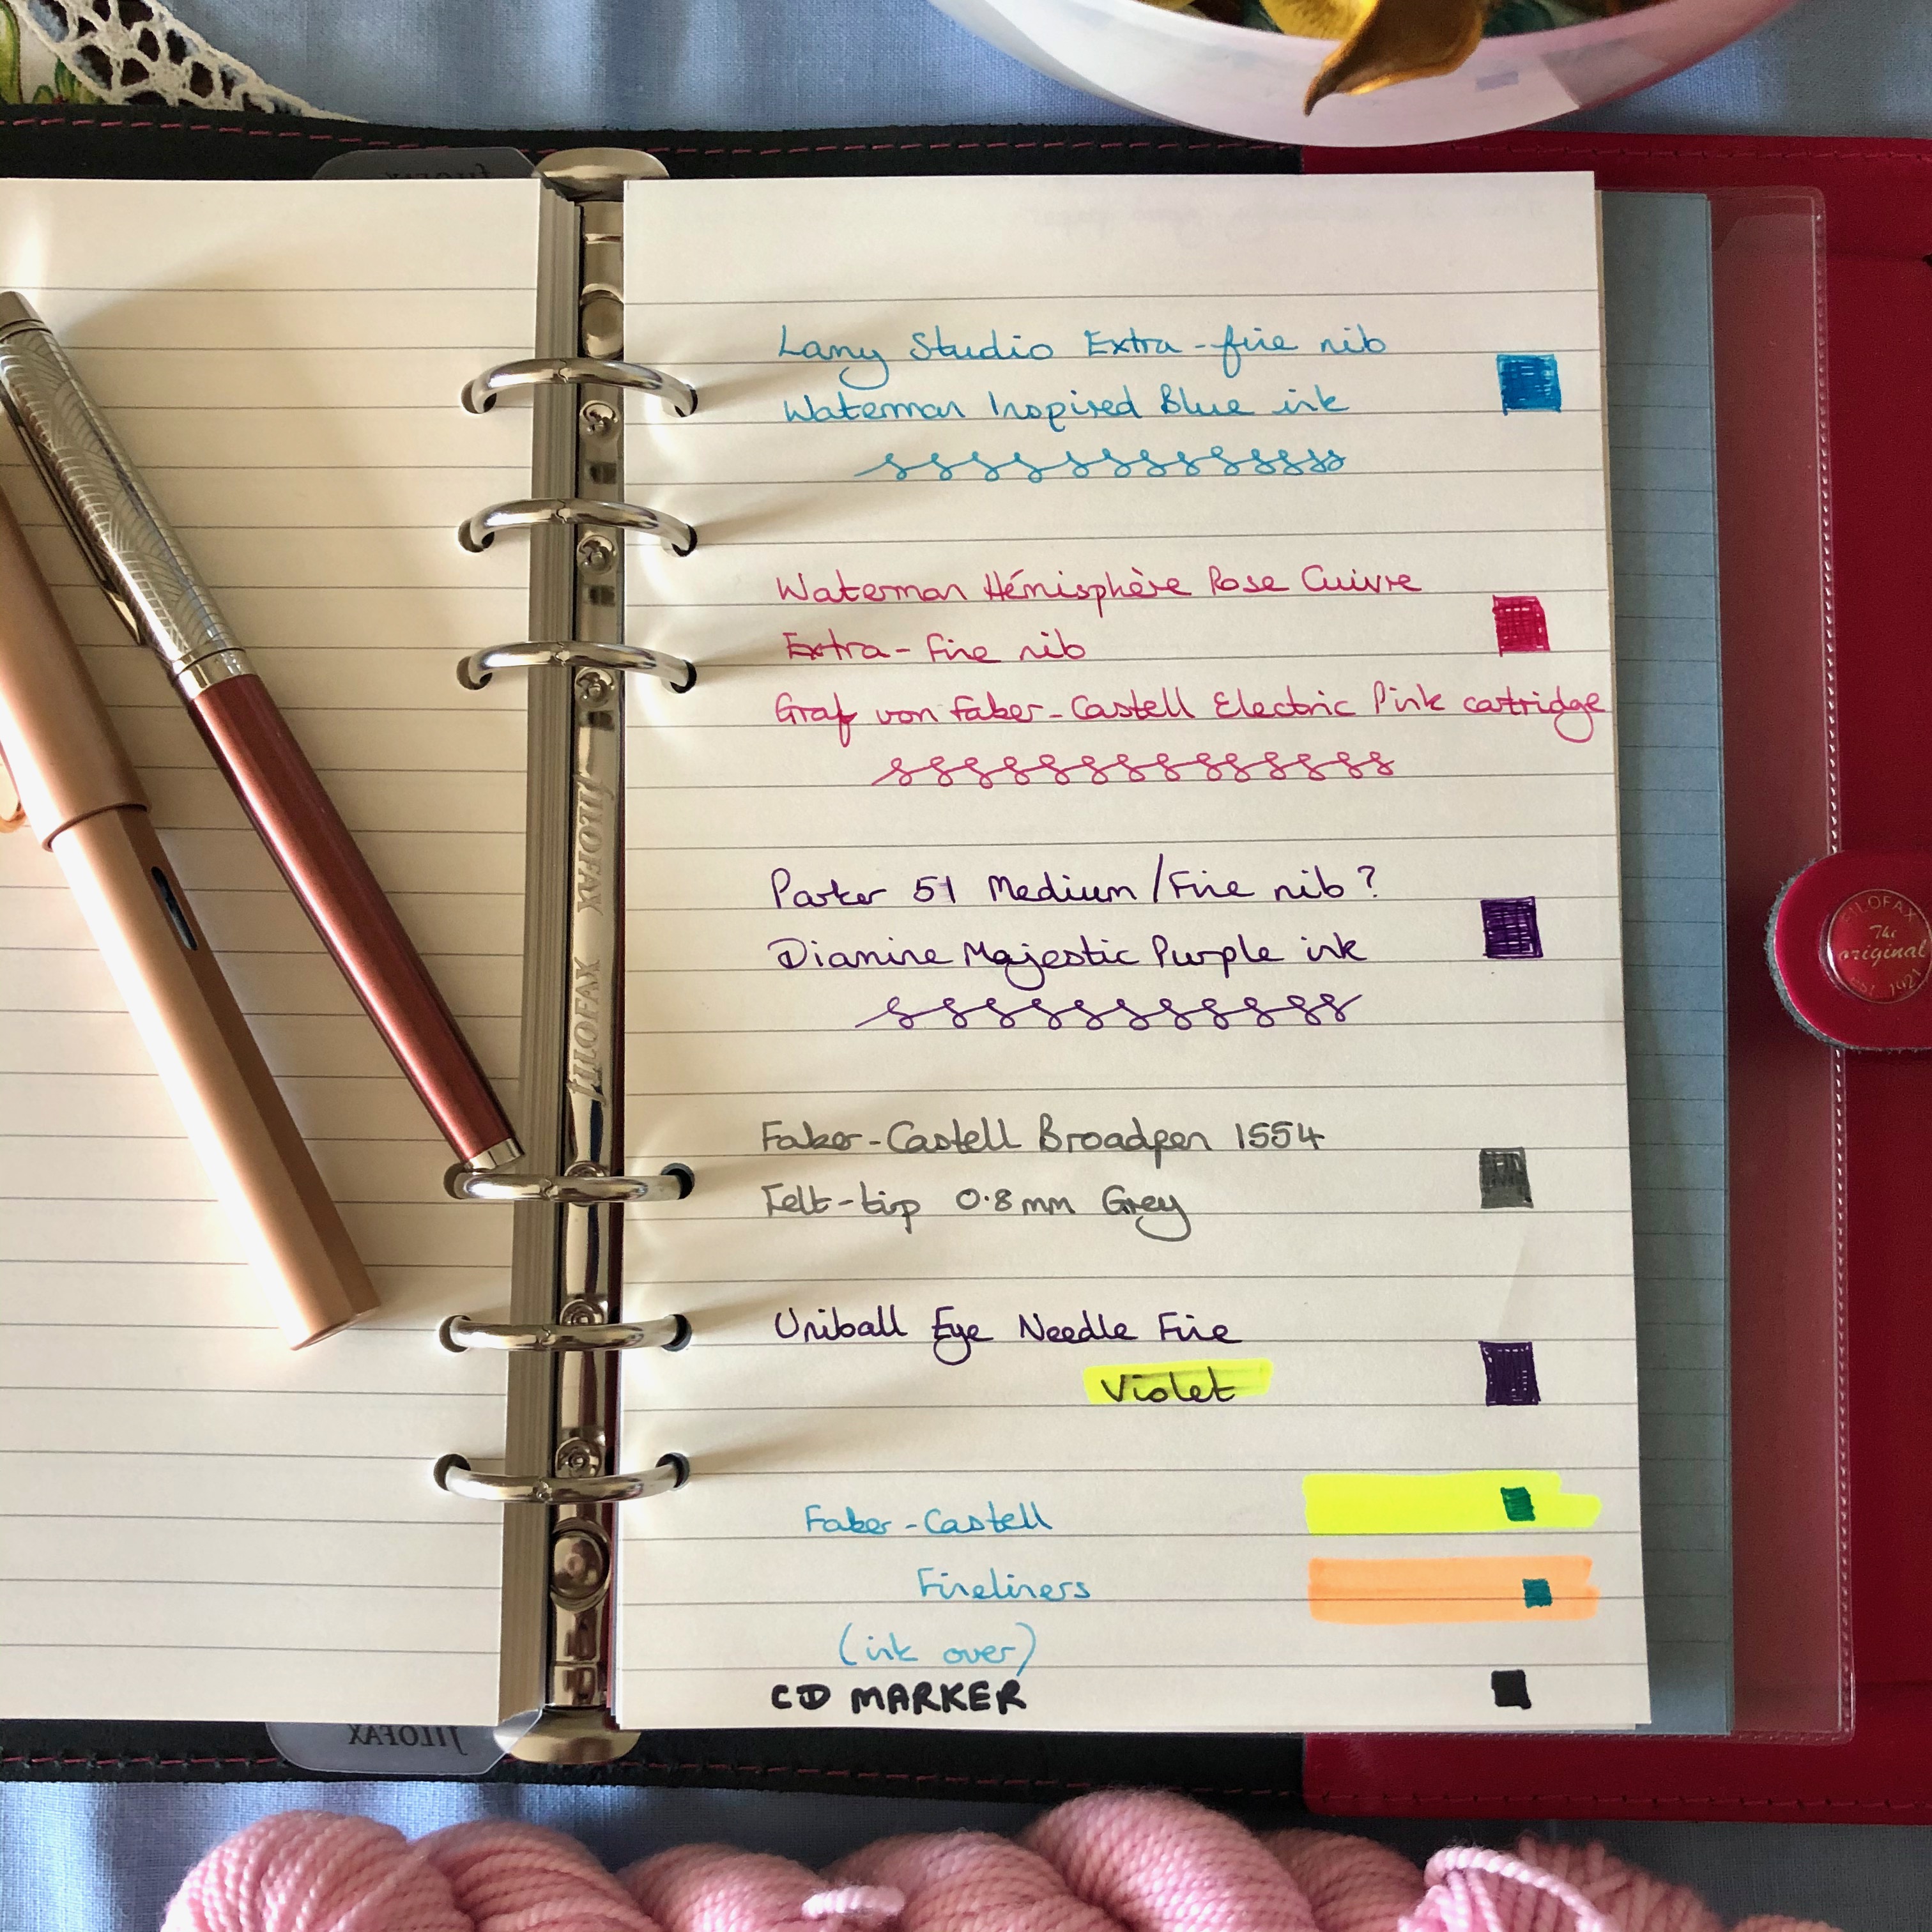 Lamy Studio Extra-fine nib
Waterman Inspired Blue ink
Waterman Hémisphère Rose Cuivre
Extra-Fine nib
Graf von Faber-Castell Electric Pink cartridge
Parker 51 Medium/Fine nib?
Diamine Majestic Purple ink
Faber-Castell Broadpen 1554
Felt-tip 0.8mm Grey
Uniball Eye Needle Fine
Violet
Faber-Castell
Fineliners
(ink over)
CD MARKER
FILOFAX
FILOFAX
FILOFAX
FILOFAX
FILOFAX
The
original
EST. 1921